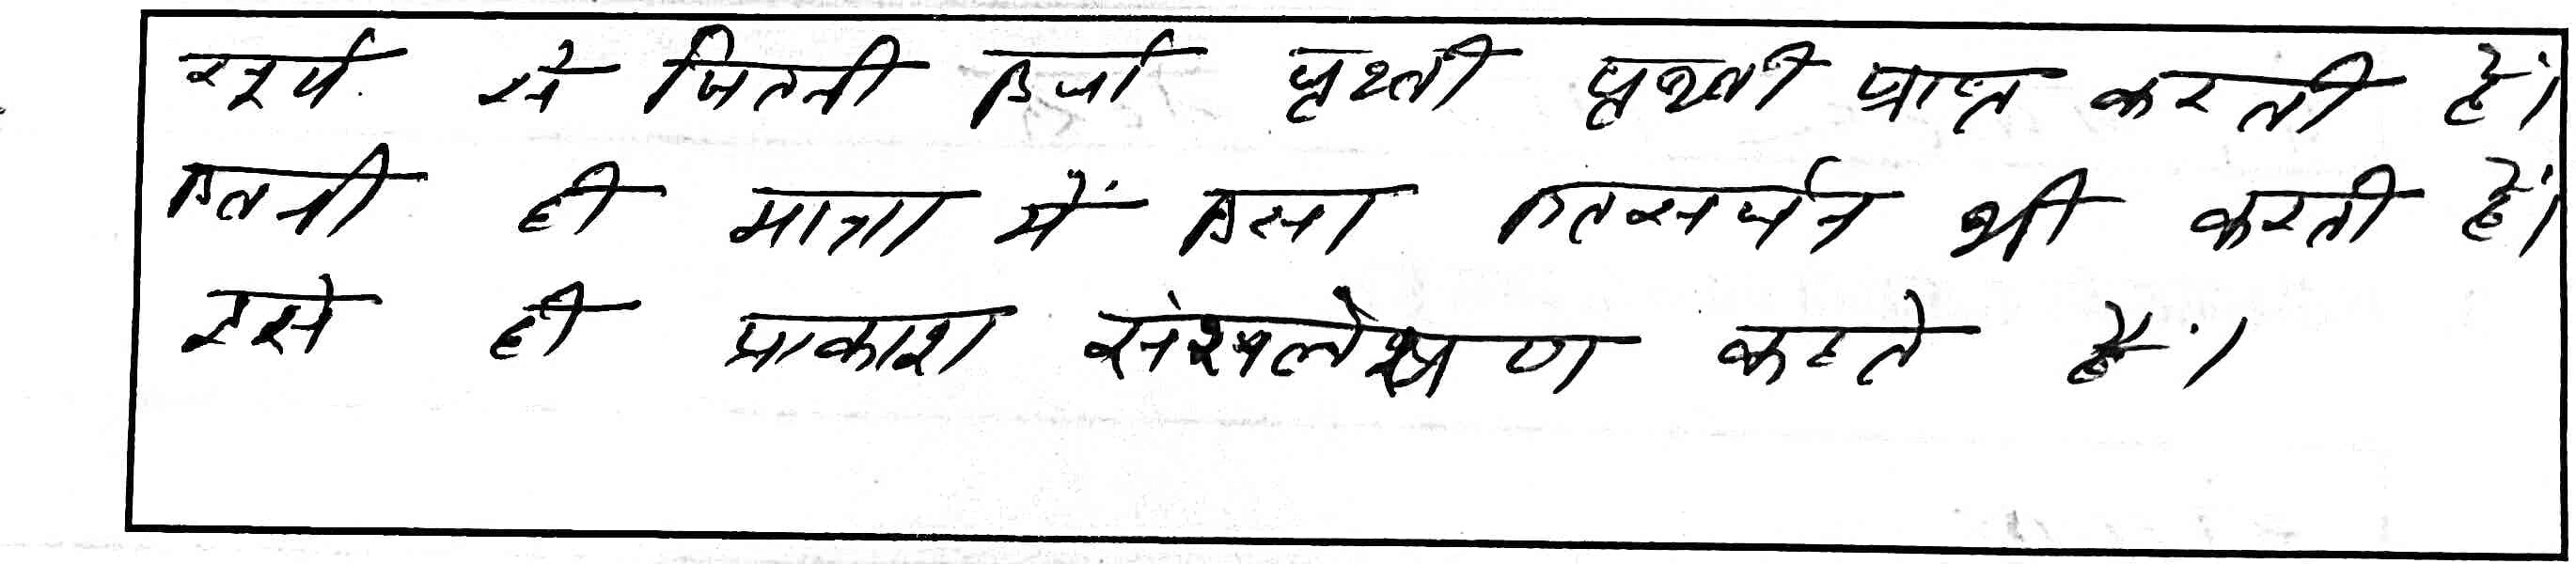 सूर्य से जितनी उर्जा पृथ्वी पृथ्वी प्राप्त करती हैं।
उतनी ही मात्रा में उत्सर्जन भी करती हैं।
इसे ही प्राकाश संश्लेषण कहते हैं।